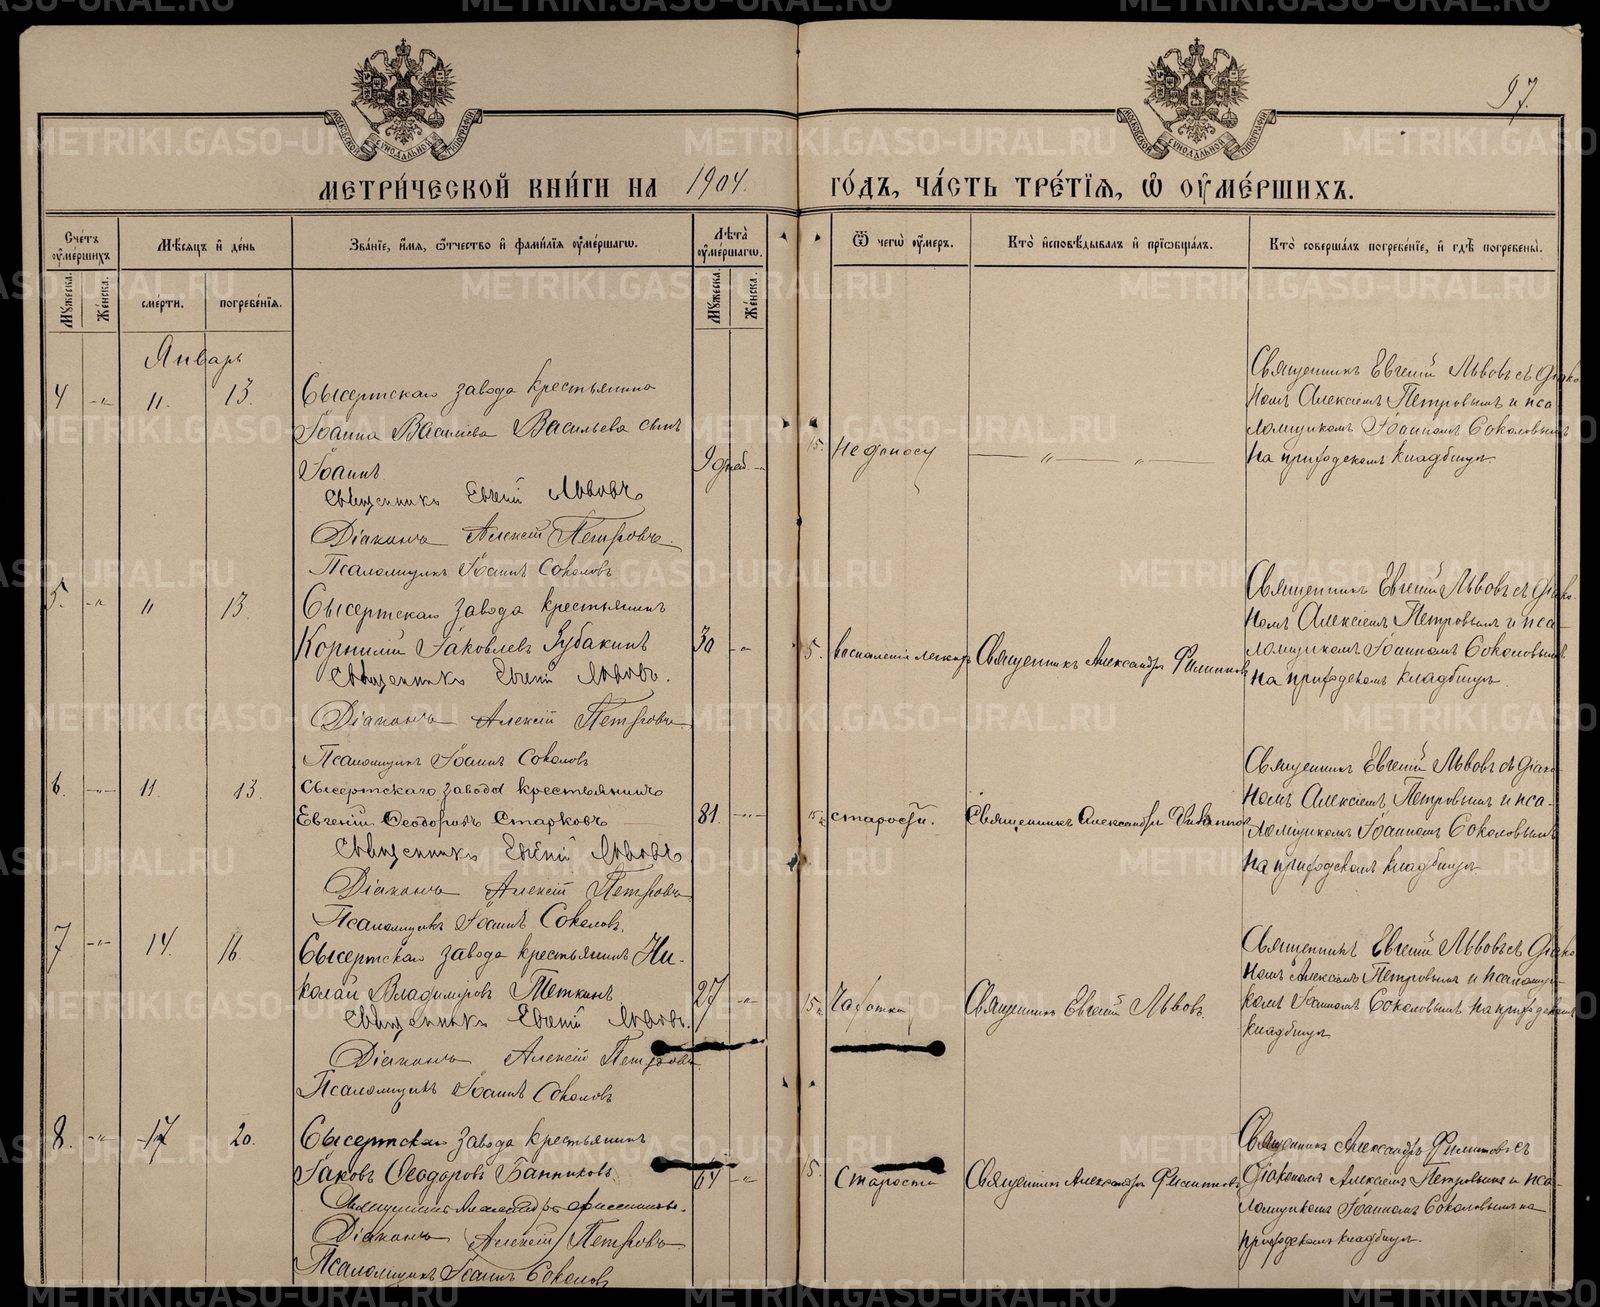 97.
МОСКОВСКОЙ СѴНОДАЛЬНОЙ ТИПОГРАФІИ
МОСКОВСКОЙ СѴНОДАЛЬНОЙ ТИПОГРАФІИ
МЕТРИ́ЧЕСКОЙ КНИ́ГИ НА 1904. ГО́ДЪ, ЧА́СТЬ ТРЕ́ТІѦ, Ѿ ОУ҆МЕ́РШИХЪ.
Сче́тъ оумершихъ
Мужеска.
Женска.
Мѣсяцъ и день
смерти.
погребенія.
Званіе, имя, отчество и фамилія оумершагω.
Лѣта оумершагω.
Мужеска.
Женска.
Ѿ чегω оумеръ.
Кто исповѣдывалъ и пріωбщалъ.
Кто совершалъ погребеніе, и гдѣ погребены.
Январь
4 -"- 11. 13.
Сысертскаго завода крестьянина
Іоанна Василіева Васильева сынъ
Іоаннъ
9 дней -
Священникъ Евгеній Львовъ
Діаконъ Алексій Петровъ.
Псаломщикъ Іоаннъ Соколовъ
15. Недоносу
— " — " —
Священникъ Евгеній Львовъ съ діако
номъ Алексіемъ Петровымъ и пса
ломщикомъ Іоанномъ Соколовымъ
На приходскомъ кладбищѣ.
5. -"- " 13
Сысертскаго завода крестьянинъ
Корнилій Іаковлевъ Зубакинъ
30 -"-
Священникъ Евгеній Львовъ.
Діаконъ Алексій Петровъ
Псаломщикъ Іоаннъ Соколовъ
5. воспаленія легкихъ
Священникъ Александръ Филипповъ
Священникъ Евгеній Львовъ съ діако
номъ Алексіемъ Петровымъ и пса-
ломщикомъ Іоанномъ Соколовымъ
На приходскомъ кладбищѣ.
6. -"- 11. 13.
Сысертскаго завода крестьянинъ
Евгеній Ѳеодоровъ Старковъ
81. -"-
Священникъ Евгеній Львовъ
Діаконъ Алексій Петровъ
Псаломщикъ Іоаннъ Соколовъ.
15 старости.
Священникъ Александръ Филипповъ
Священникъ Евгеній Львовъ съ діако
номъ Алексіемъ Петровымъ и пса-
ломщикомъ Іоанномъ Соколовымъ
На приходскомъ кладбищѣ
7 -"- 14. 16.
Сысертскаго завода крестьянинъ Ни-
колай Владиміровъ Теткинъ
27 -"-
Священникъ Евгеній Львовъ.
Діаконъ Алексій Петровъ
Псаломщикъ Іоаннъ Соколовъ
15 Чахотки
Священникъ Евгеній Львовъ.
Священникъ Евгеній Львовъ съ діако
номъ Алексіемъ Петровымъ и псаломщи-
комъ Іоанномъ Соколовымъ на приходскомъ
кладбищѣ
8. -"- 17 20.
Сысертскаго завода крестьянинъ
Іаковъ Ѳеодоровъ Банниковъ
64 -"-
Священникъ Александръ Филипповъ.
Діаконъ Алексій Петровъ
Псаломщикъ Іоаннъ Соколовъ
15. Старости
Священникъ Александръ Филипповъ
Священникъ Александръ Филипповъ съ
діакономъ Алексіемъ Петровымъ и пса-
ломщикомъ Іоанномъ Соколовымъ на
приходскомъ кладбищѣ.
METRIKI.GASO-URAL.RU